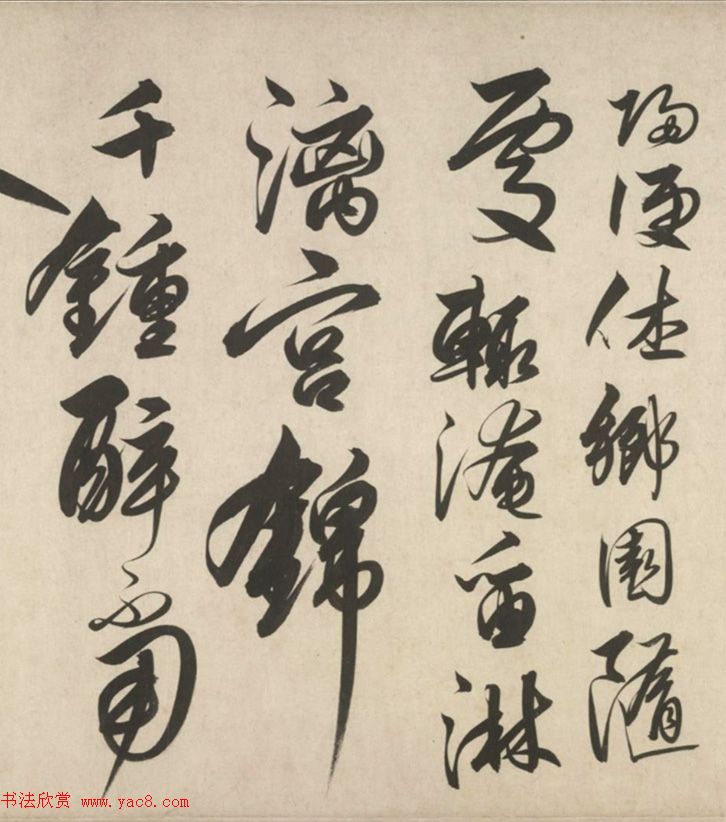 歸便佳鄉園隨
處輒淹留淋
漓宮錦
千鍾醉不
书法欣赏 www.yac8.com